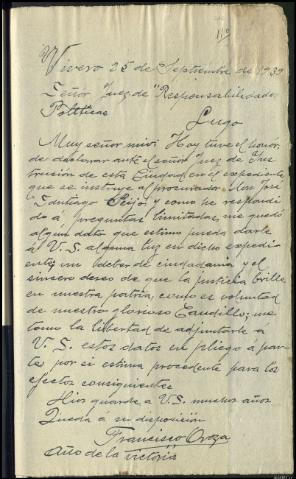 Vivero 25 de Septiembre de 1939
Señor Juez de "Responsabilidades
Politicas
Lugo
Muy señor mio: Hoy tuve el honor
de declarar ante el señor Juez de Ins
trucción de esta Ciudad, en el expediente
que se instruye al procurador, Don José
Santiago Seijo y como he respondi
do á preguntas me quedó
algun dato que estimo pueda darle
á V.S. alguna luz en dicho expedi
ente; un deber de ciudadania y el
sincero deseo de que la justicia brille
en nuestra patria, como es voluntad
de nuestro glorioso Caudillo; me
tomo la libertad de adjuntarle a
V.S. estos datos en pliego a par
te por si estima procedente para los
efectos consiguientes
Dios guarde a V.S. muchos años
Queda á su disposición
Francisco
Año de la victoria